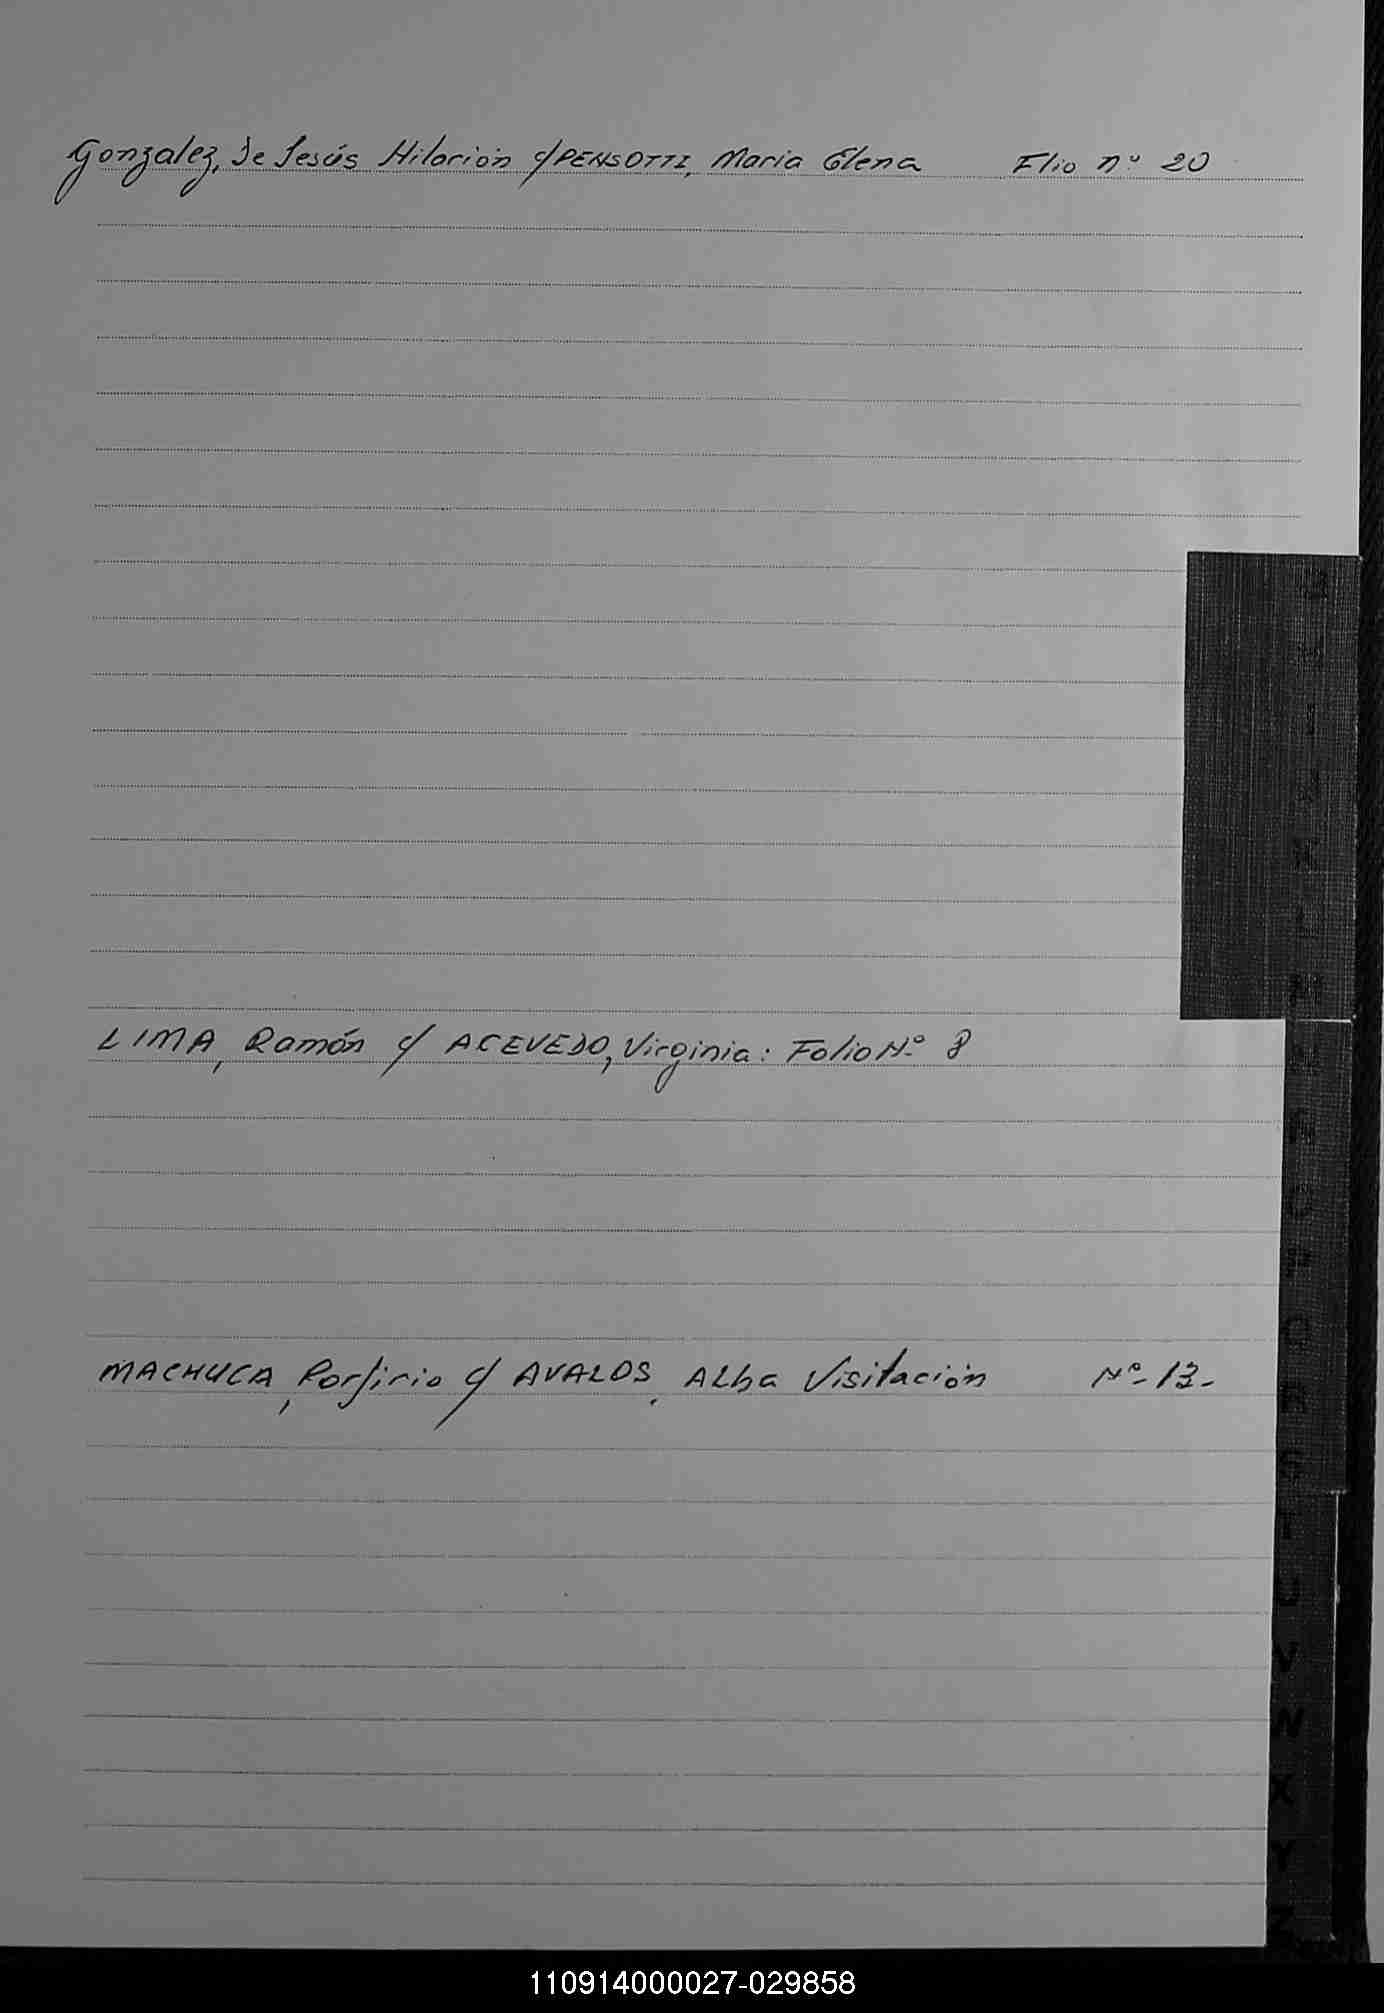 Gonzalez, De Jesús Hilarión c/PENSOTTI, Maria Elena Flio nº 20
LIMA, Ramón c/ ACEVEDO, Virginia: Folio Nº 8
MACHUCA, Porfirio c/ AVALOS, ALba Visitación Nº- 13-
M
T
U
V
W
X
Y
Z
110914000027-029858